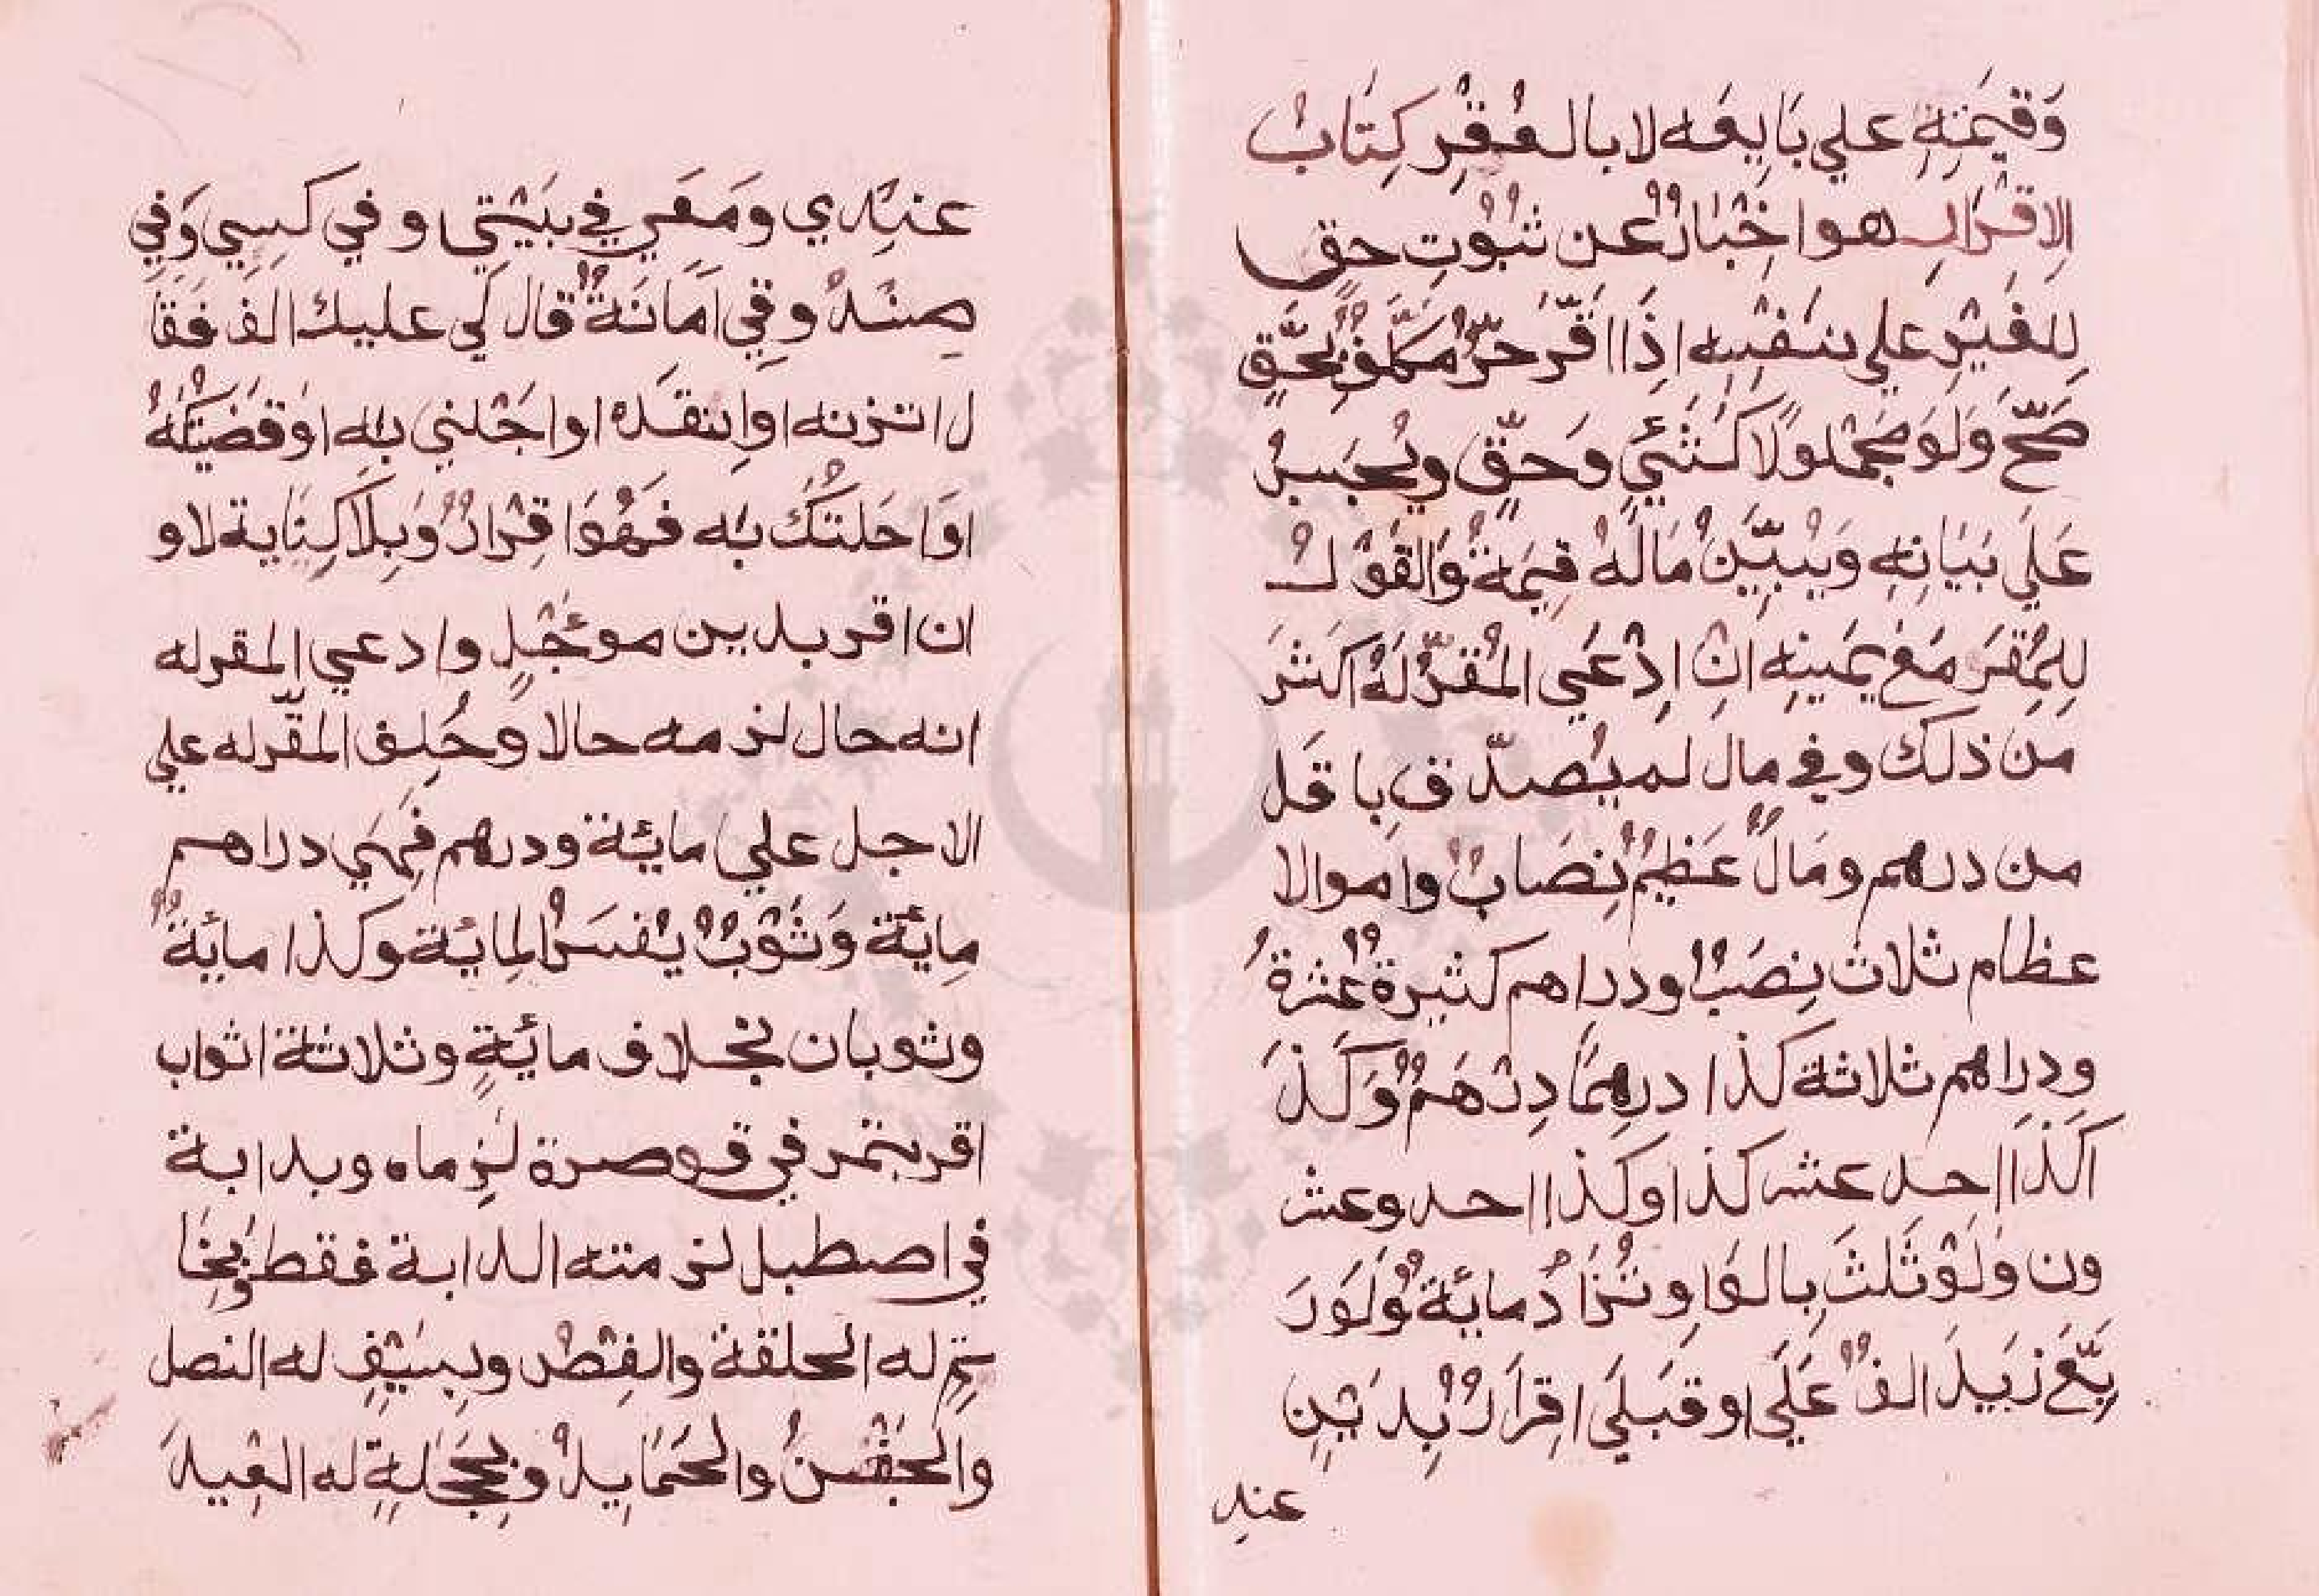 وَقيمَتِهِ علي بَايِعَه لا بالعُقْرِ كِتَابُ
الِاقِرَارِ هو اخِبْارٌ عن ثبُوْتِ حقٍ
لِلغَيْرِ علي نَفْسِهِ اِذَا اقَرّ حرٌّ مكَلَّفٌ بِحَقٍّ
صَحّ وَلَو مَجْهُلولًا كَشَئيٍ وَحقٍّ ويُجبَرُ
عَلَي بَيَانِهِ وَيُبَيّنُ مَالَهُ قِيمَةٌ وَالقَوْلُ
لِلمُقِرَ مَعَ يمَينِهِ انْ اِدْعَي المُقَرّ لَهُ اكثَرَ
مَن ذلكَ وفي مال لم يُصدّق باقل
من درهم ومَالٌ عَظِيْمٌ نِصَابٌ واموالا
عظام ثلاث نِصَبٌ ودراهم كثيرة عشرةُ
ودراهم ثلاثة كذا درهمًا دِرْهَمٌ وَكَذَ
اكَذَا احد عشر كذا وكذا احد وعشر
ون وَلَوْ ثَلثَ بِالوَاوِ تُزَادُ مائةٌ وَلَو رَ
بّعَ زبَيدَ الفٌ عَلَي او قبَلي اِقِرَارٌ بِدَيْنٍ
عند
عنِدي ومَعَي في بَيْتِي وفي كسِيي وَفي
صِنَدُ وقِي امَانَةٌ قال لي عليك الف فَقَا
ل اتزنه اوِانتقده او اجْلني به او قَضَيتُكَهُ
اوَاحَلتُكَ به فَهُوَا قِرْارٌ وَبِلَا كِنَاية لا و
ان اقر بدين موءجْلٍ وادعي المقرله
انه حال لزمه حالا وَحُلِف المقّرله علي
الاجل علي مائة ودرهم فِهَيَ دراهم
مِائَة وَثَوْبٌ يُفسَرُ المِائَة وكذا مائةٌ
وثوبان بخلاف مائةٍ وثلاثة اثواب
اقر بتمر في قوصرة لزِماه وبدابة
في اصطبل لزمته الدابة فقط وَبخِا
تِم له الحلقة والفِصُّ وبِسَيْفٍ له النصل
والجَفْسنُ والحَمَايلُ وبِحَجَلةٍ له العِيدَ